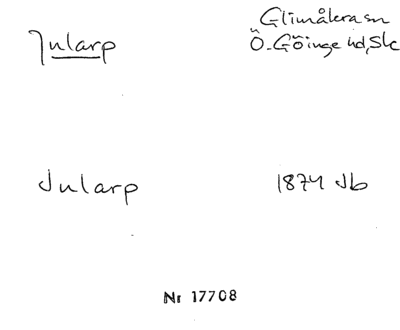 Jularp
Glimåkra sn
Ö. Göinge hd, Sk
Jularp 1874 Jb
Nr 17708